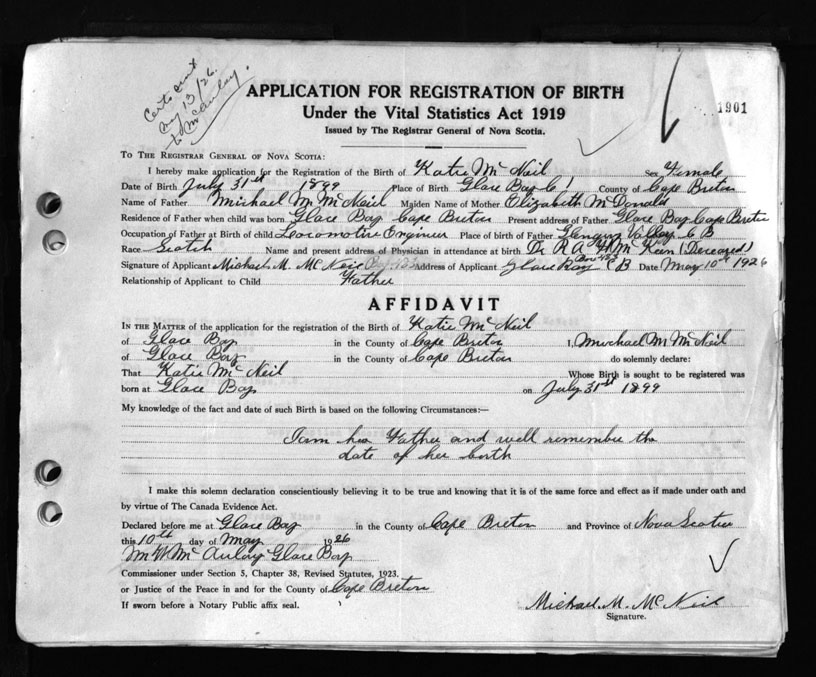 Certs sent
May 13/26.
to McAulay.
APPLICATION FOR REGISTRATION OF BIRTH
Under the Vital Statistics Act 1919
Issued by The Registrar General of Nova Scotia.
1901
To The Registrar General of Nova Scotia:
I hereby make application for the Registration of the Birth of Katie McNeil Sex Female
Date of Birth July 31st 1899 Place of Birth Glace Bay C County of Cape Breton
Name of Father Michael M McNeil Maiden Name of Mother Elizabeth McDonald
Residence of Father when child was born Glace Bay Cape Breton Present address of Father Glace Bay Cape Breton
Occupation of Father at Birth of child Locomotive Engineer Place of birth of Father Valley C B
Race Scotch Name and present address of Physician in attendance at birth Dr R A H McKeen (Deceased)
Signature of Applicant Michael M. McNeil Address of Applicant Glace Bay Box 153 C B Date May 10th 1926
Relationship of Applicant to Child Father
AFFIDAVIT
In the Matter of the application for the registration of the Birth of Katie McNeil
of Glace Bay in the County of Cape Breton I, Michael M McNeil
of Glace Bay in the County of Cape Breton do solemnly declare:
That Katie McNeil Whose Birth is sought to be registered was
born at Glace Bay on July 31st 1899
My knowledge of the fact and date of such Birth is based on the following Circumstances:—
I am her Father and well remember the
date of her birth
I make this solemn declaration conscientiously believing it to be true and knowing that it is of the same force and effect as if made under oath and
by virtue of The Canada Evidence Act.
Declared before me at Glace Bay in the County of Cape Breton and Province of Nova Scotia
this 10th day of May 1926
M W McAulay Glace Bay
Commissioner under Section 5, Chapter 38, Revised Statutes, 1923.
or Justice of the Peace in and for the County of Cape Breton
If sworn before a Notary Public affix seal.
Michael. M. McNeil
Signature.